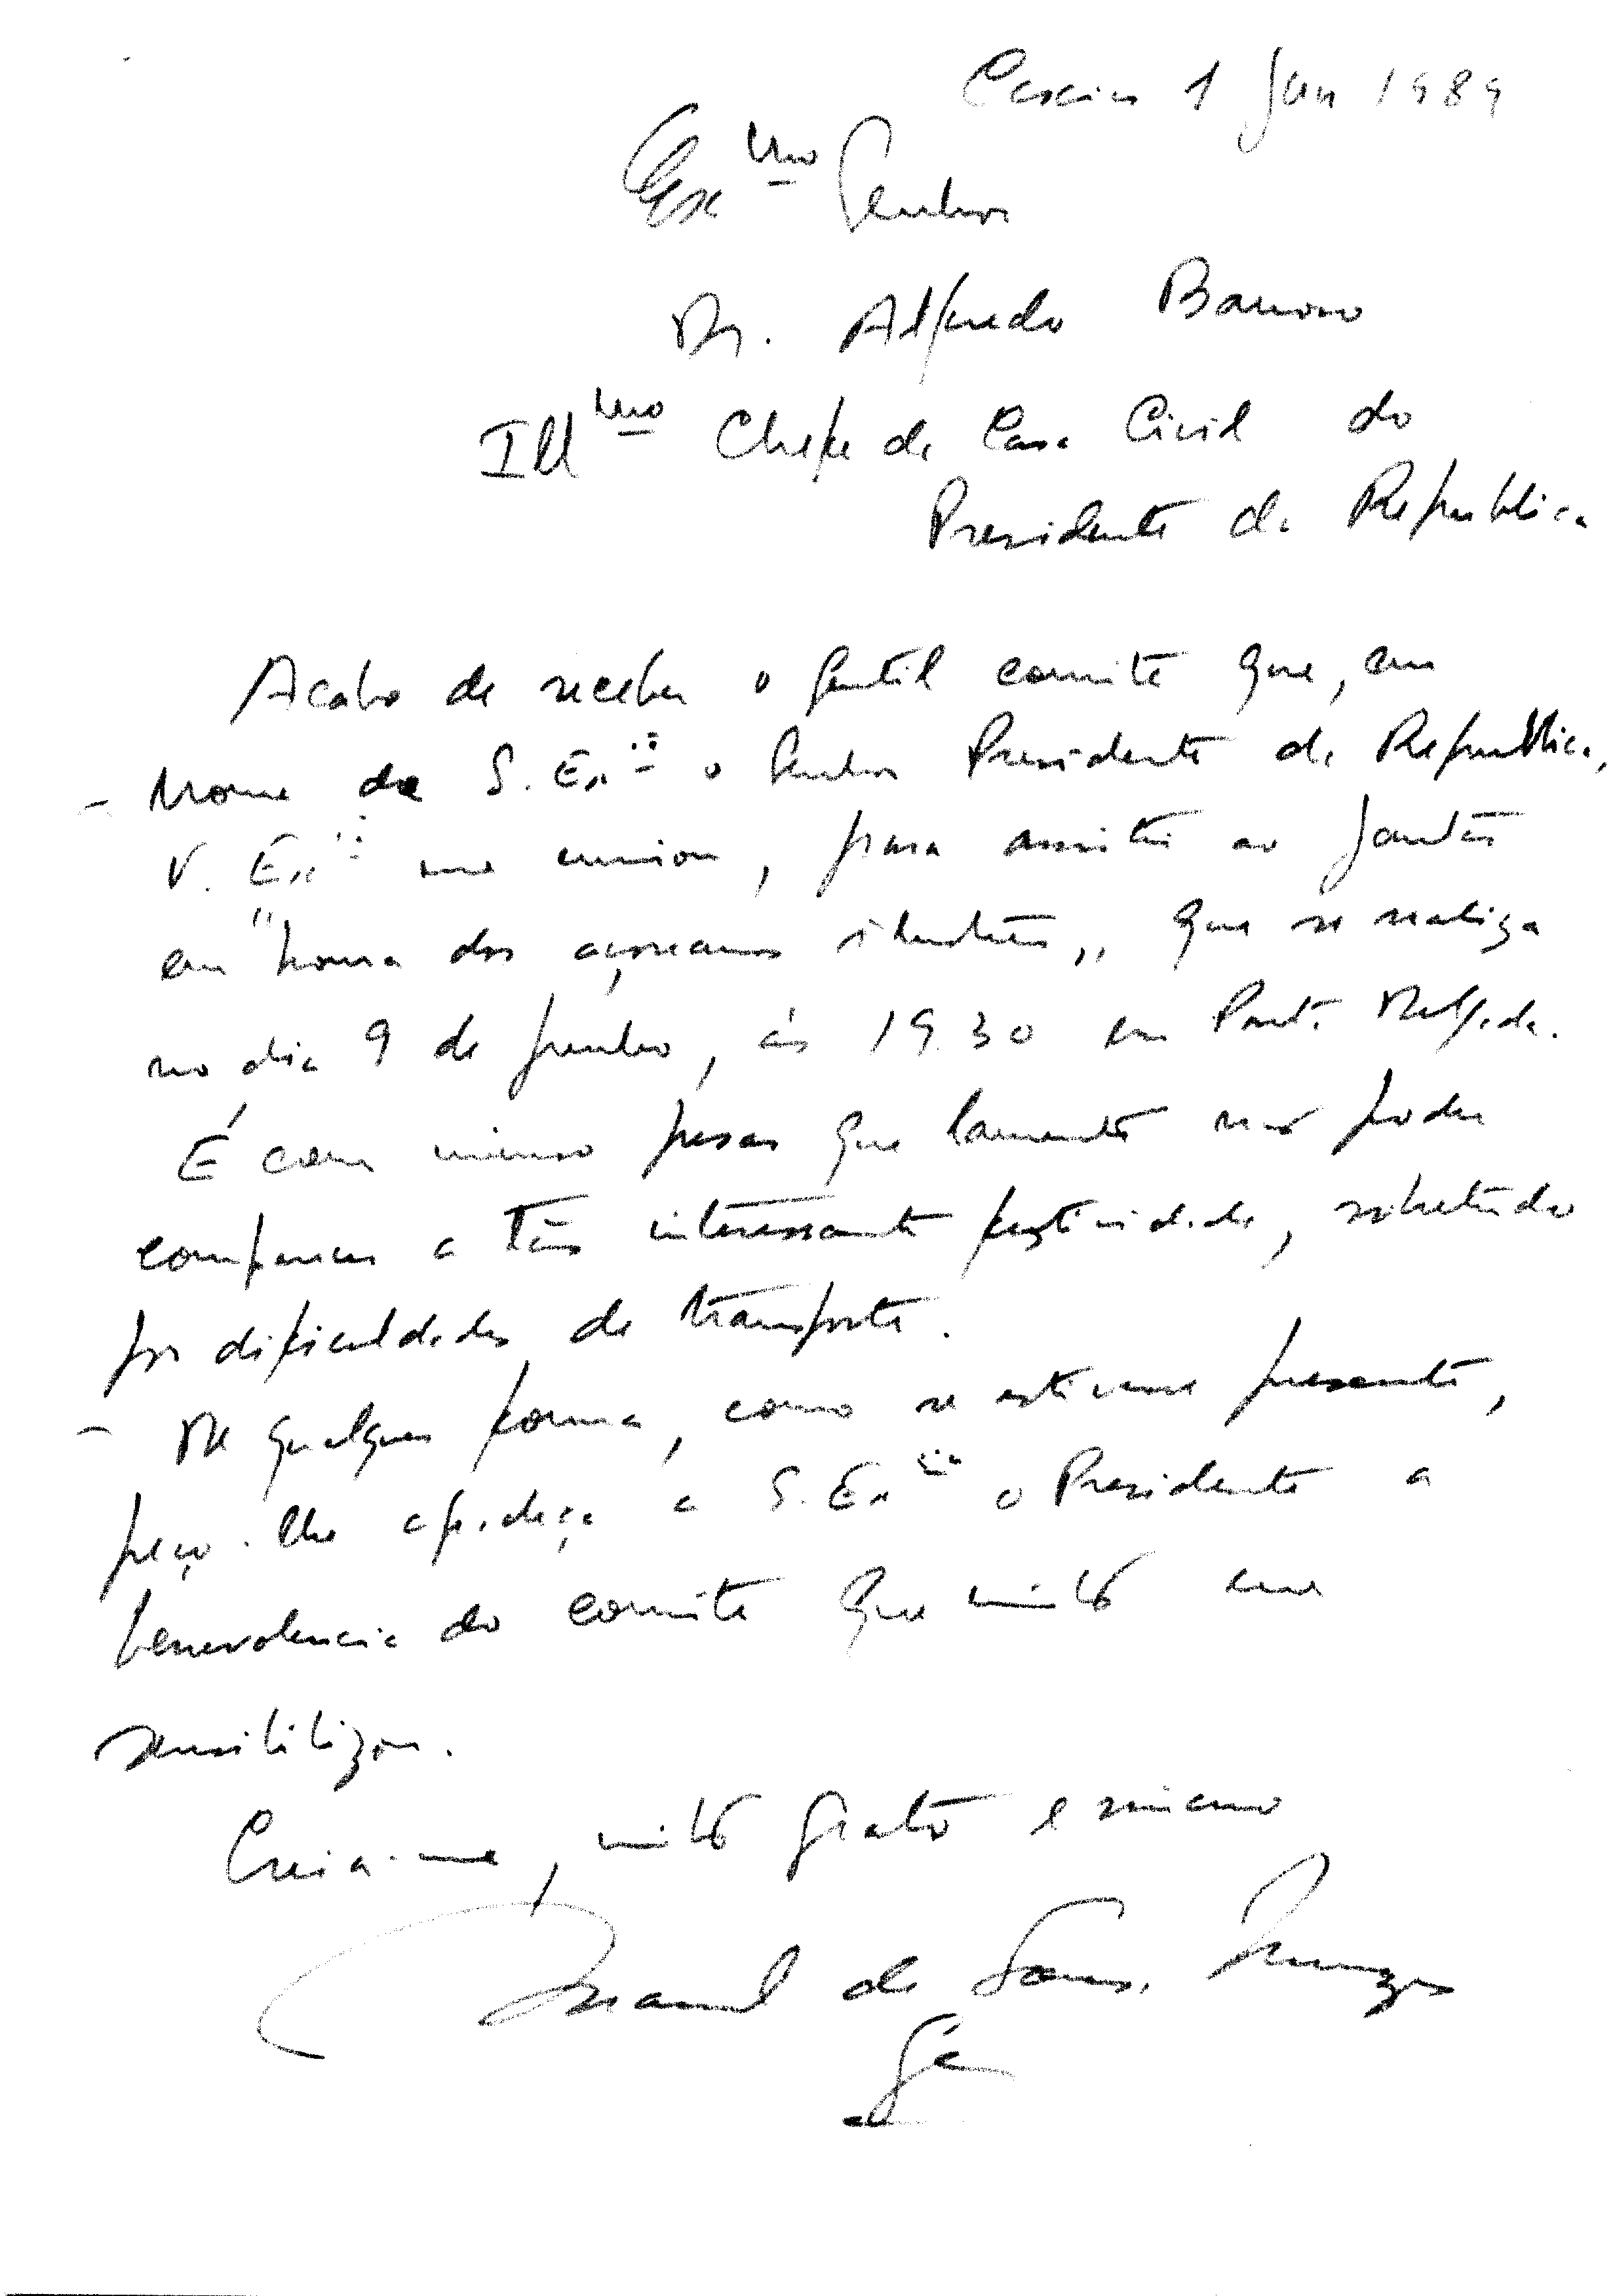 Cascais 1 Jun 1989
Ex.mo Senhor
Dr. Alfredo Barroso
Ill.mo Chefe da Casa Civil do
Presidente da Republica
Acabo de receber o gentil convite que, em
nome de S. Ex.cia o Senhor Presidente da Republica,
V. Ex.cia me enviou, para assistir ao jantar
em "honra dos açoreanos ilustres", que se realiza
no dia 9 de junho, às 19.30 em Ponta Delgada.
É com imenso pesar que lamento não poder
comparecer a tão interessante festividade, sobretudo
por dificuldades de transporte.
- De qualquer forma, como se estivesse presente,
peço-lhe agradeça a S. Ex.cia o Presidente a
benevolencia do convite que muito me
sensibilizou.
Creia-me, muito grato e
Manuel de Sousa Menezes